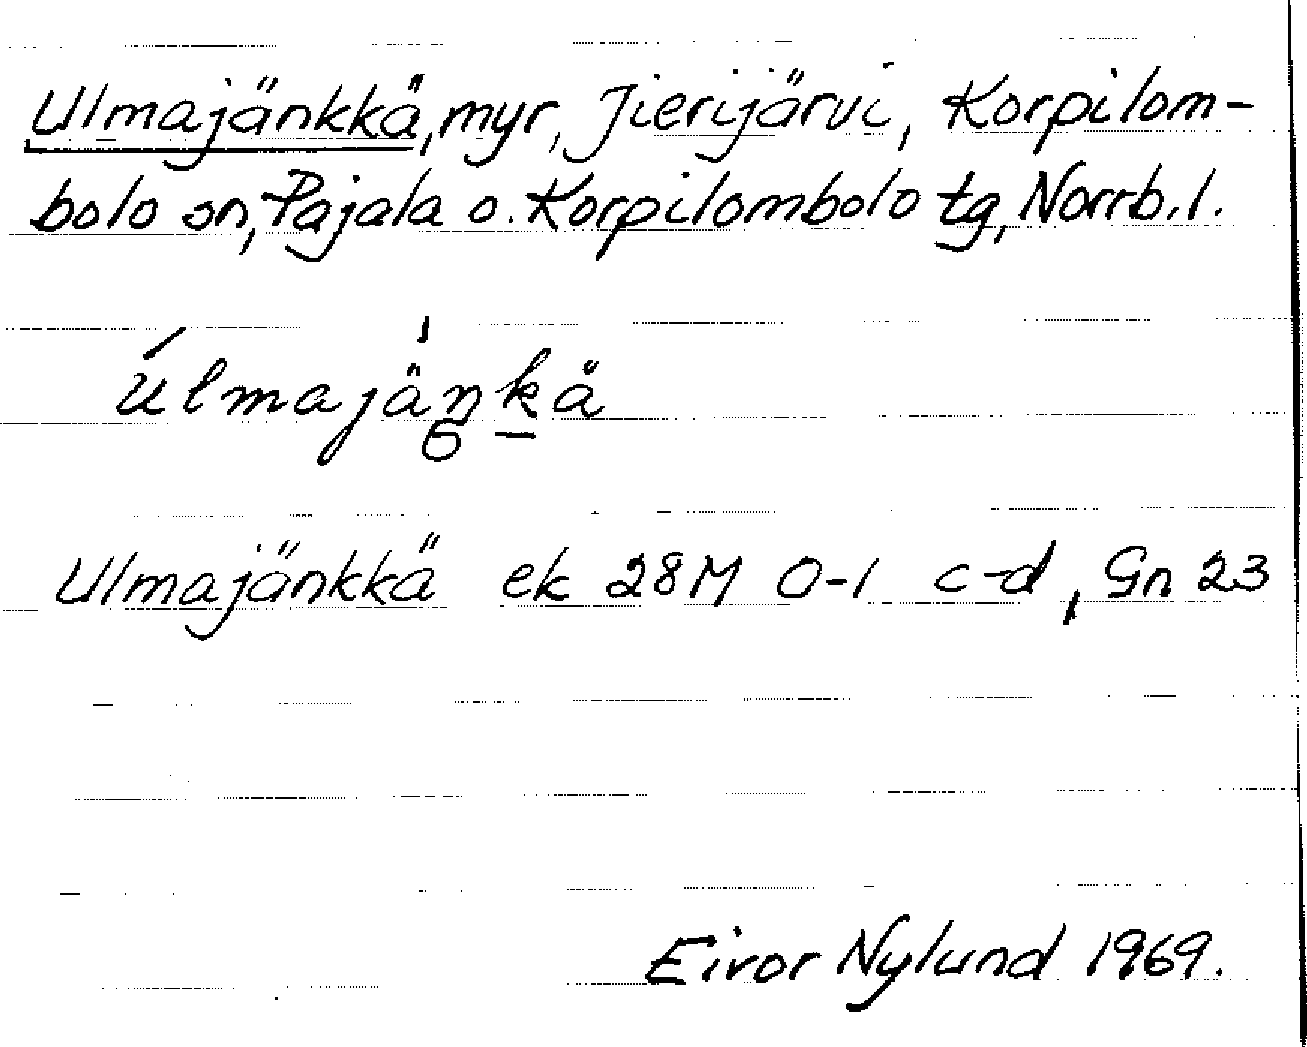 Ulmajänkkä, myr, Jierijärvi, Korpilom-
bolo sn, Pajala o. Korpilombolo tg, Norrb.l.
Úlmajäŋkä
Ulmajänkkä ek 28M 0-1 c-d, Gn 23
Eivor Nylund 1969.